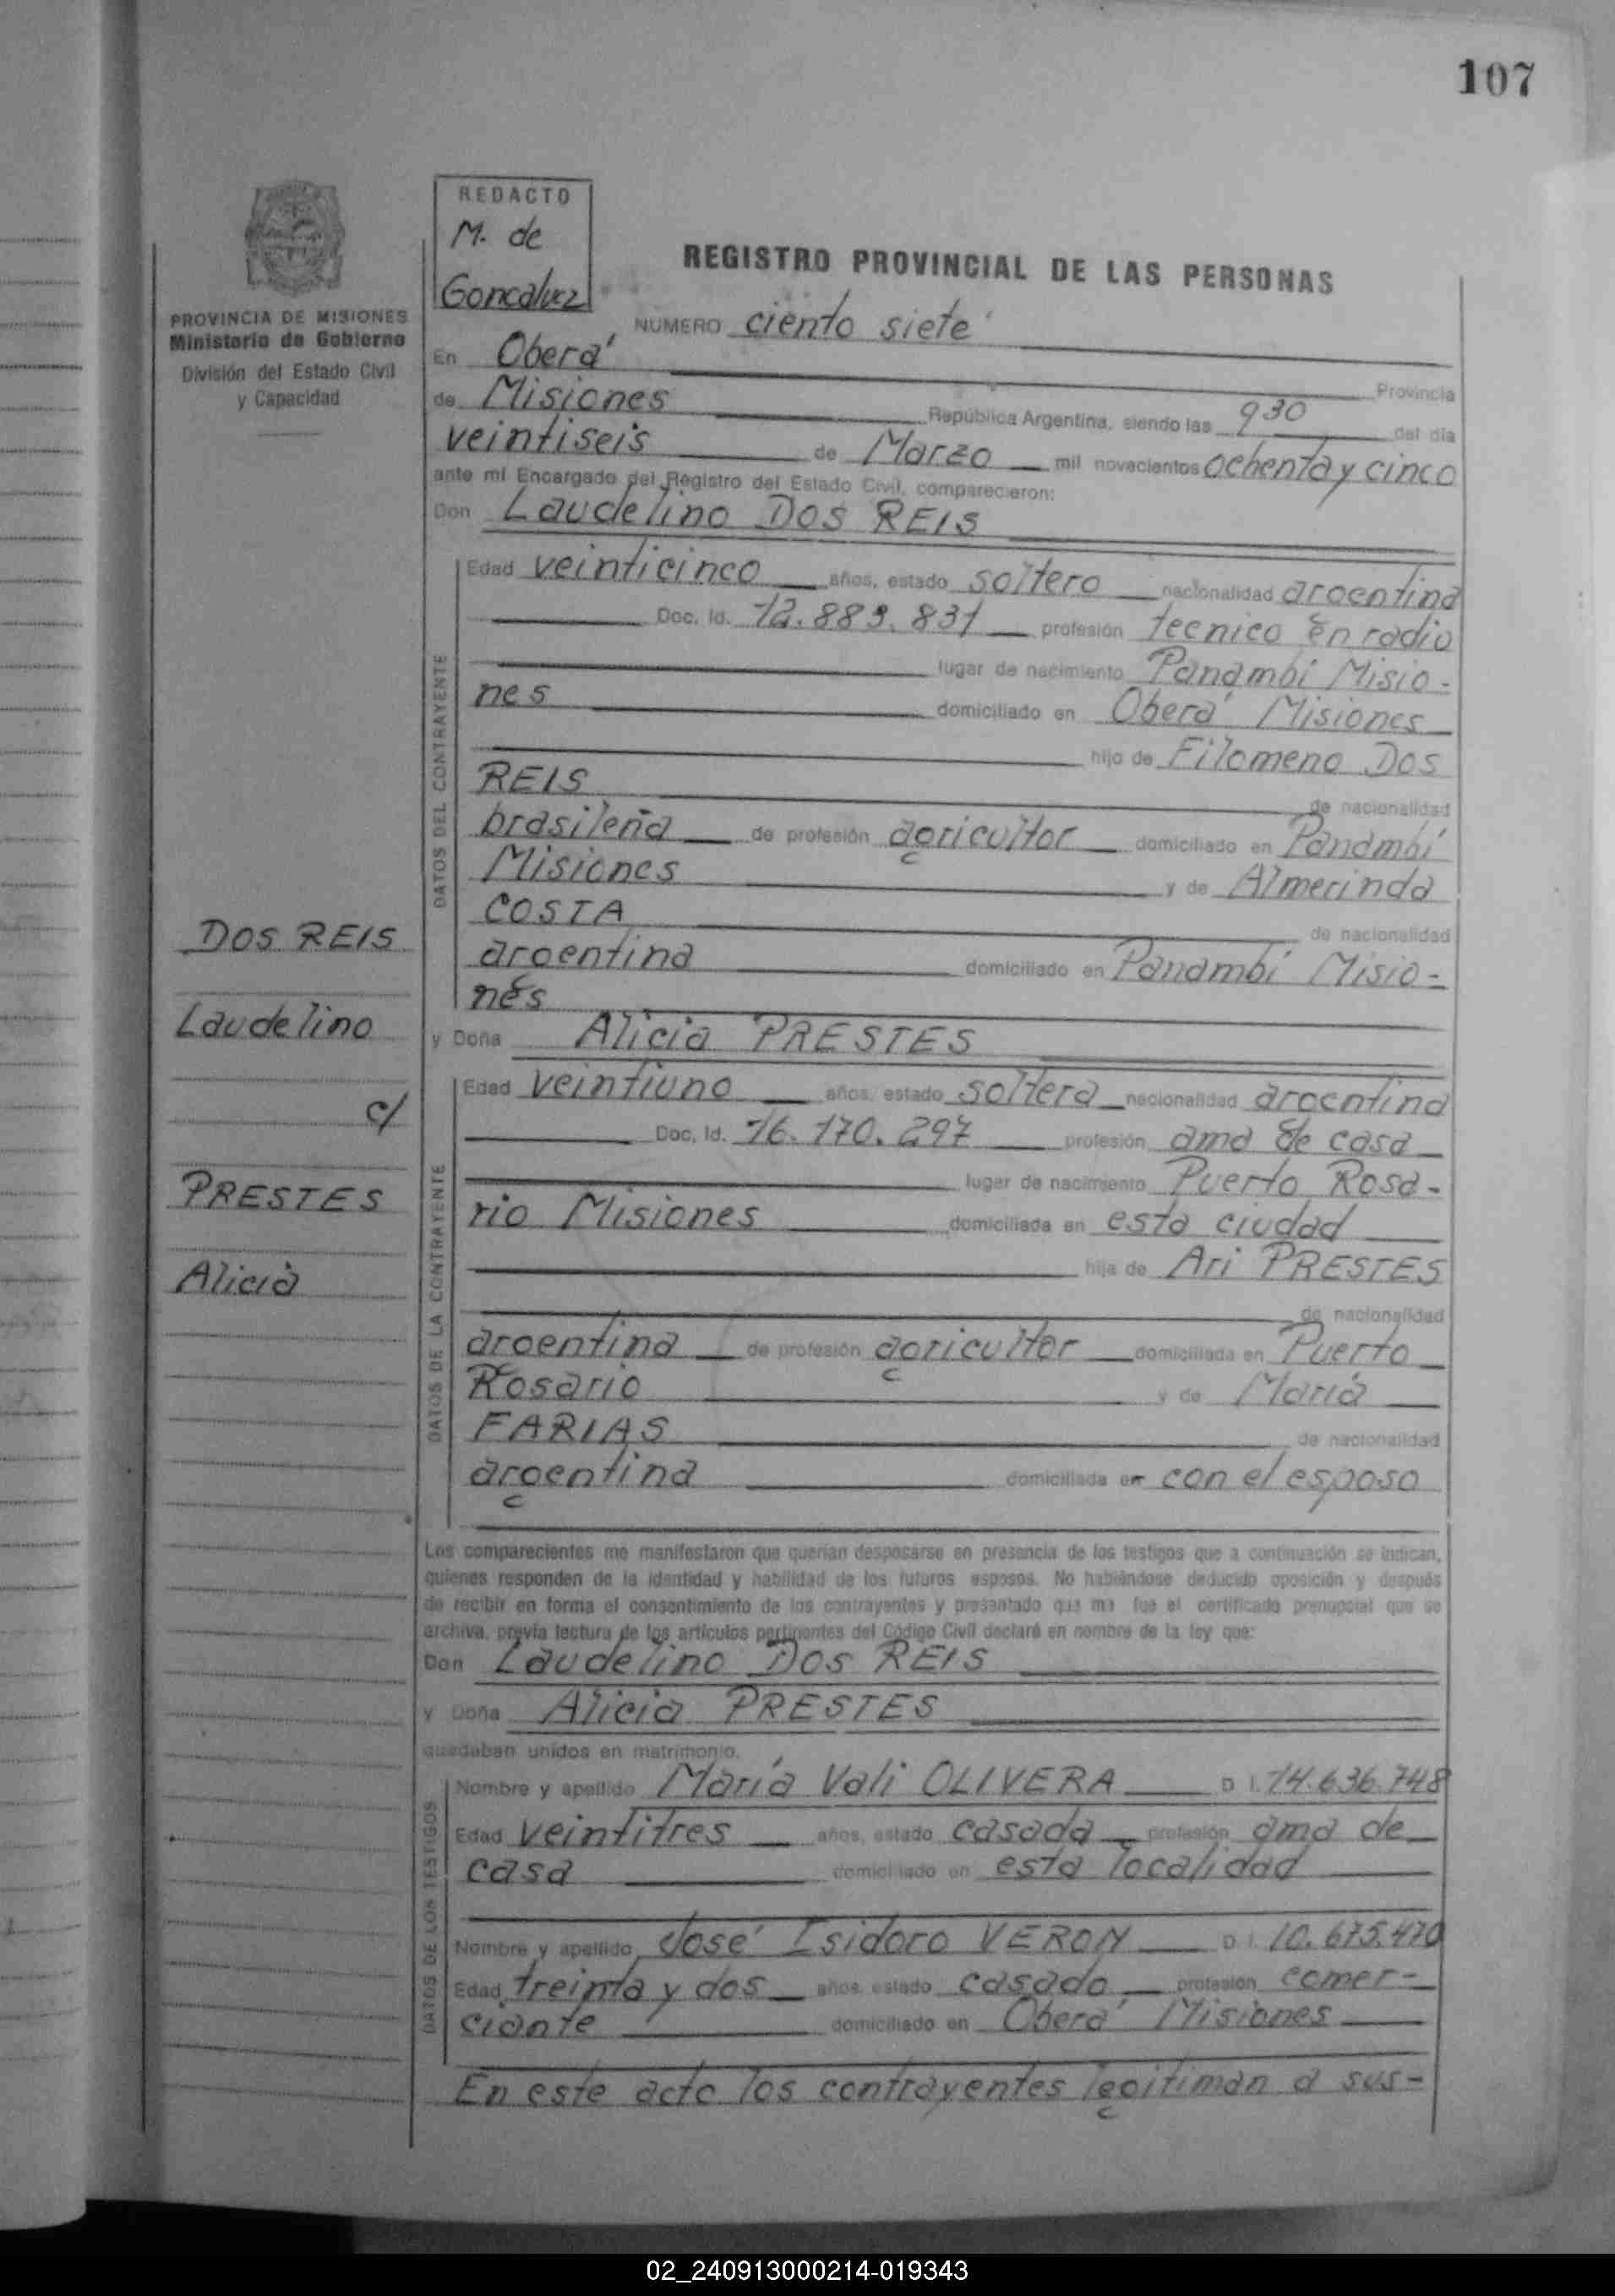 107
REDACTO
M. de
Goncalvez
REGISTRO PROVINCIAL DE LAS PERSONAS
PROVINCIA DE MISIONES
Ministerio de Gobierno
División del Estado Civil
y Capacidad
NUMERO ciento siete
En Oberá Provincia
de Misiones República Argentina, siendo las 930 del día
veintiseis de Marzo mil novecientos ochenta y cinco
ante mí Encargado del Registro del Estado Civil, comparecieron:
Don Laudelino DOS REIS
DATOS DEL CONTRAYENTE
Edad veinticinco años, estado soltero nacionalidad argentina
Doc. Id. 12.889.831 profesión tecnico en radio
lugar de nacimiento Panambí Misio-
nes domiciliado en Oberá Misiones
hijo de Filomeno DOS
REIS de nacionalidad
brasileña de profesión agricultor domiciliado en Panambí
Misiones y de Almerinda
COSTA de nacionalidad
argentina domiciliado en Panambí Misio-
nes
DOS REIS
Laudelino
c/
PRESTES
Alicia
y Doña Alicia PRESTES
DATOS DE LA CONTRAYENTE
Edad veintiuno años, estado soltera nacionalidad argentina
Doc. Id. 16.170.297 profesión ama de casa
lugar de nacimiento Puerto Rosa-
rio Misiones domiciliada en esta ciudad
hija de Ari PRESTES
de nacionalidad
argentina de profesión agricultor domiciliada en Puerto
Rosario y de María
FARIAS de nacionalidad
argentina domiciliada en con el esposo
Los comparecientes me manifestaron que querían desposarse en presencia de los testigos que a continuación se indican,
quienes responden de la identidad y habilidad de los futuros esposos. No habiéndose deducido oposición y después
de recibir en forma el consentimiento de los contrayentes y presentado que me fue el certificado prenupcial que se
archiva, previa lectura de los artículos pertinentes del Código Civil declaré en nombre de la ley que:
Don Laudelino DOS REIS
y Doña Alicia PRESTES
quedaban unidos en matrimonio.
DATOS DE LOS TESTIGOS
Nombre y apellido María Vali OLIVERA D.I. 14.636.748
Edad veintitres años, estado casada profesión ama de
casa domiciliado en esta localidad
Nombre y apellido José Isidoro VERON D.I. 10.675.470
Edad treinta y dos años, estado casado profesión comer-
ciante domiciliado en Oberá Misiones
En este acto los contrayentes legitiman a sus-
02_240913000214-019343